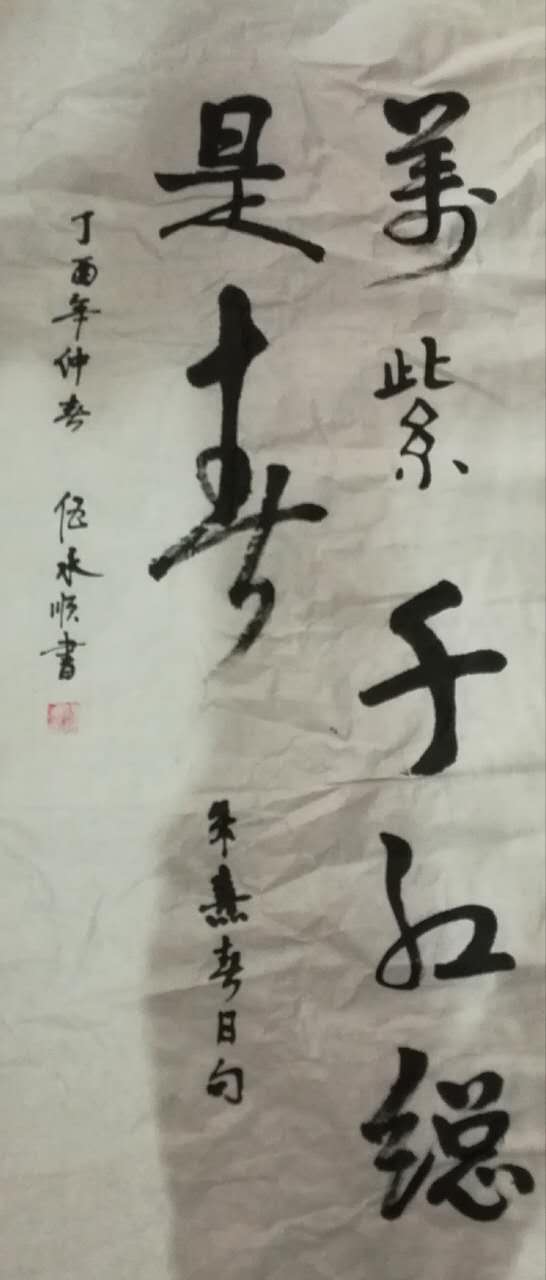 萬紫千红總
是春
朱熹春日句
丁酉年仲春 伍永順書